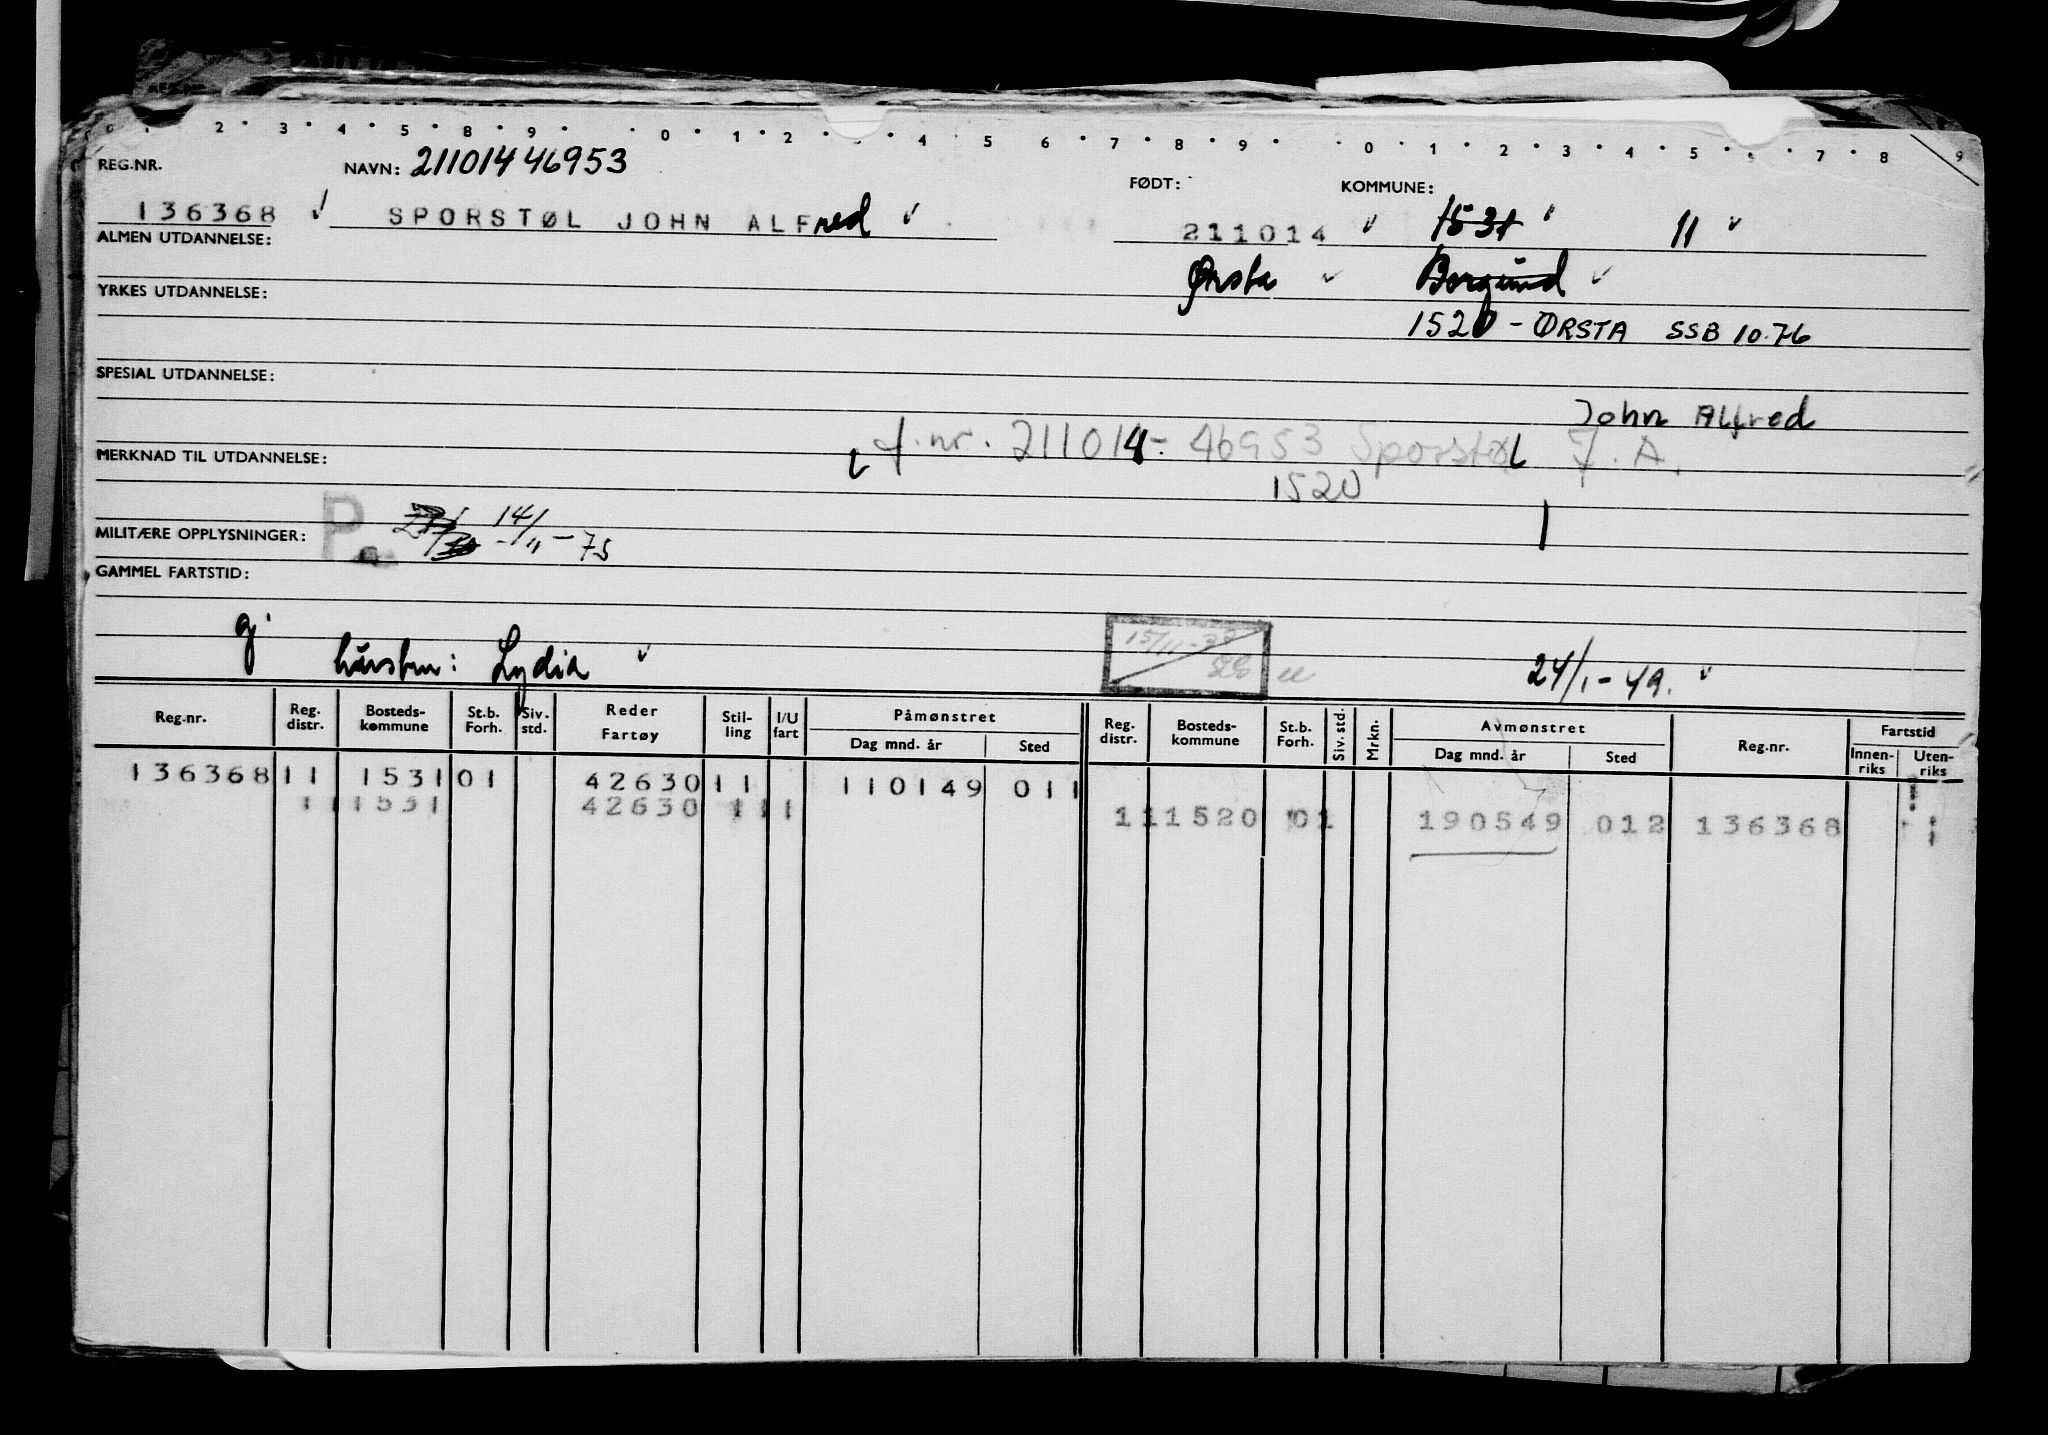 2 3 4 5 8 9 0 1 2 4 5 6 7 8 9 0 1 2 3 4 5 7 8 9
REG.NR. NAVN: 21101446953 FØDT: KOMMUNE:
136368 SPORSTØL JOHN ALFred 211014 1531 11
ALMEN UTDANNELSE: Ørsta Borgund
YRKES UTDANNELSE: 1520 - ØRSTA SSB 10.76
SPESIAL UTDANNELSE:
John Alfred
f.nr. 211014- 46953 Sporstøl J. A.
MERKNAD TIL UTDANNELSE: 1520
MILITÆRE OPPLYSNINGER: P. 14/11-75
GAMMEL FARTSTID:
g. 15/11-
hustru: Lydia 24/1-49.
Reg.nr. Reg. distr. Bosteds-kommune St.b. Forh. Siv. std. Reder Fartøy Stil-ling I/U fart Påmønstret Dag mnd. år Sted Reg. distr. Bosteds-kommune St.b. Forh. Siv. std. Mrkn. Avmønstret Dag mnd. år Sted Reg.nr. Fartstid Innen-riks Uten-riks
136368 11 1531 01 42630 11 110149 011
11 1531 42630 11 1 11 1520 01 190549 012 136368